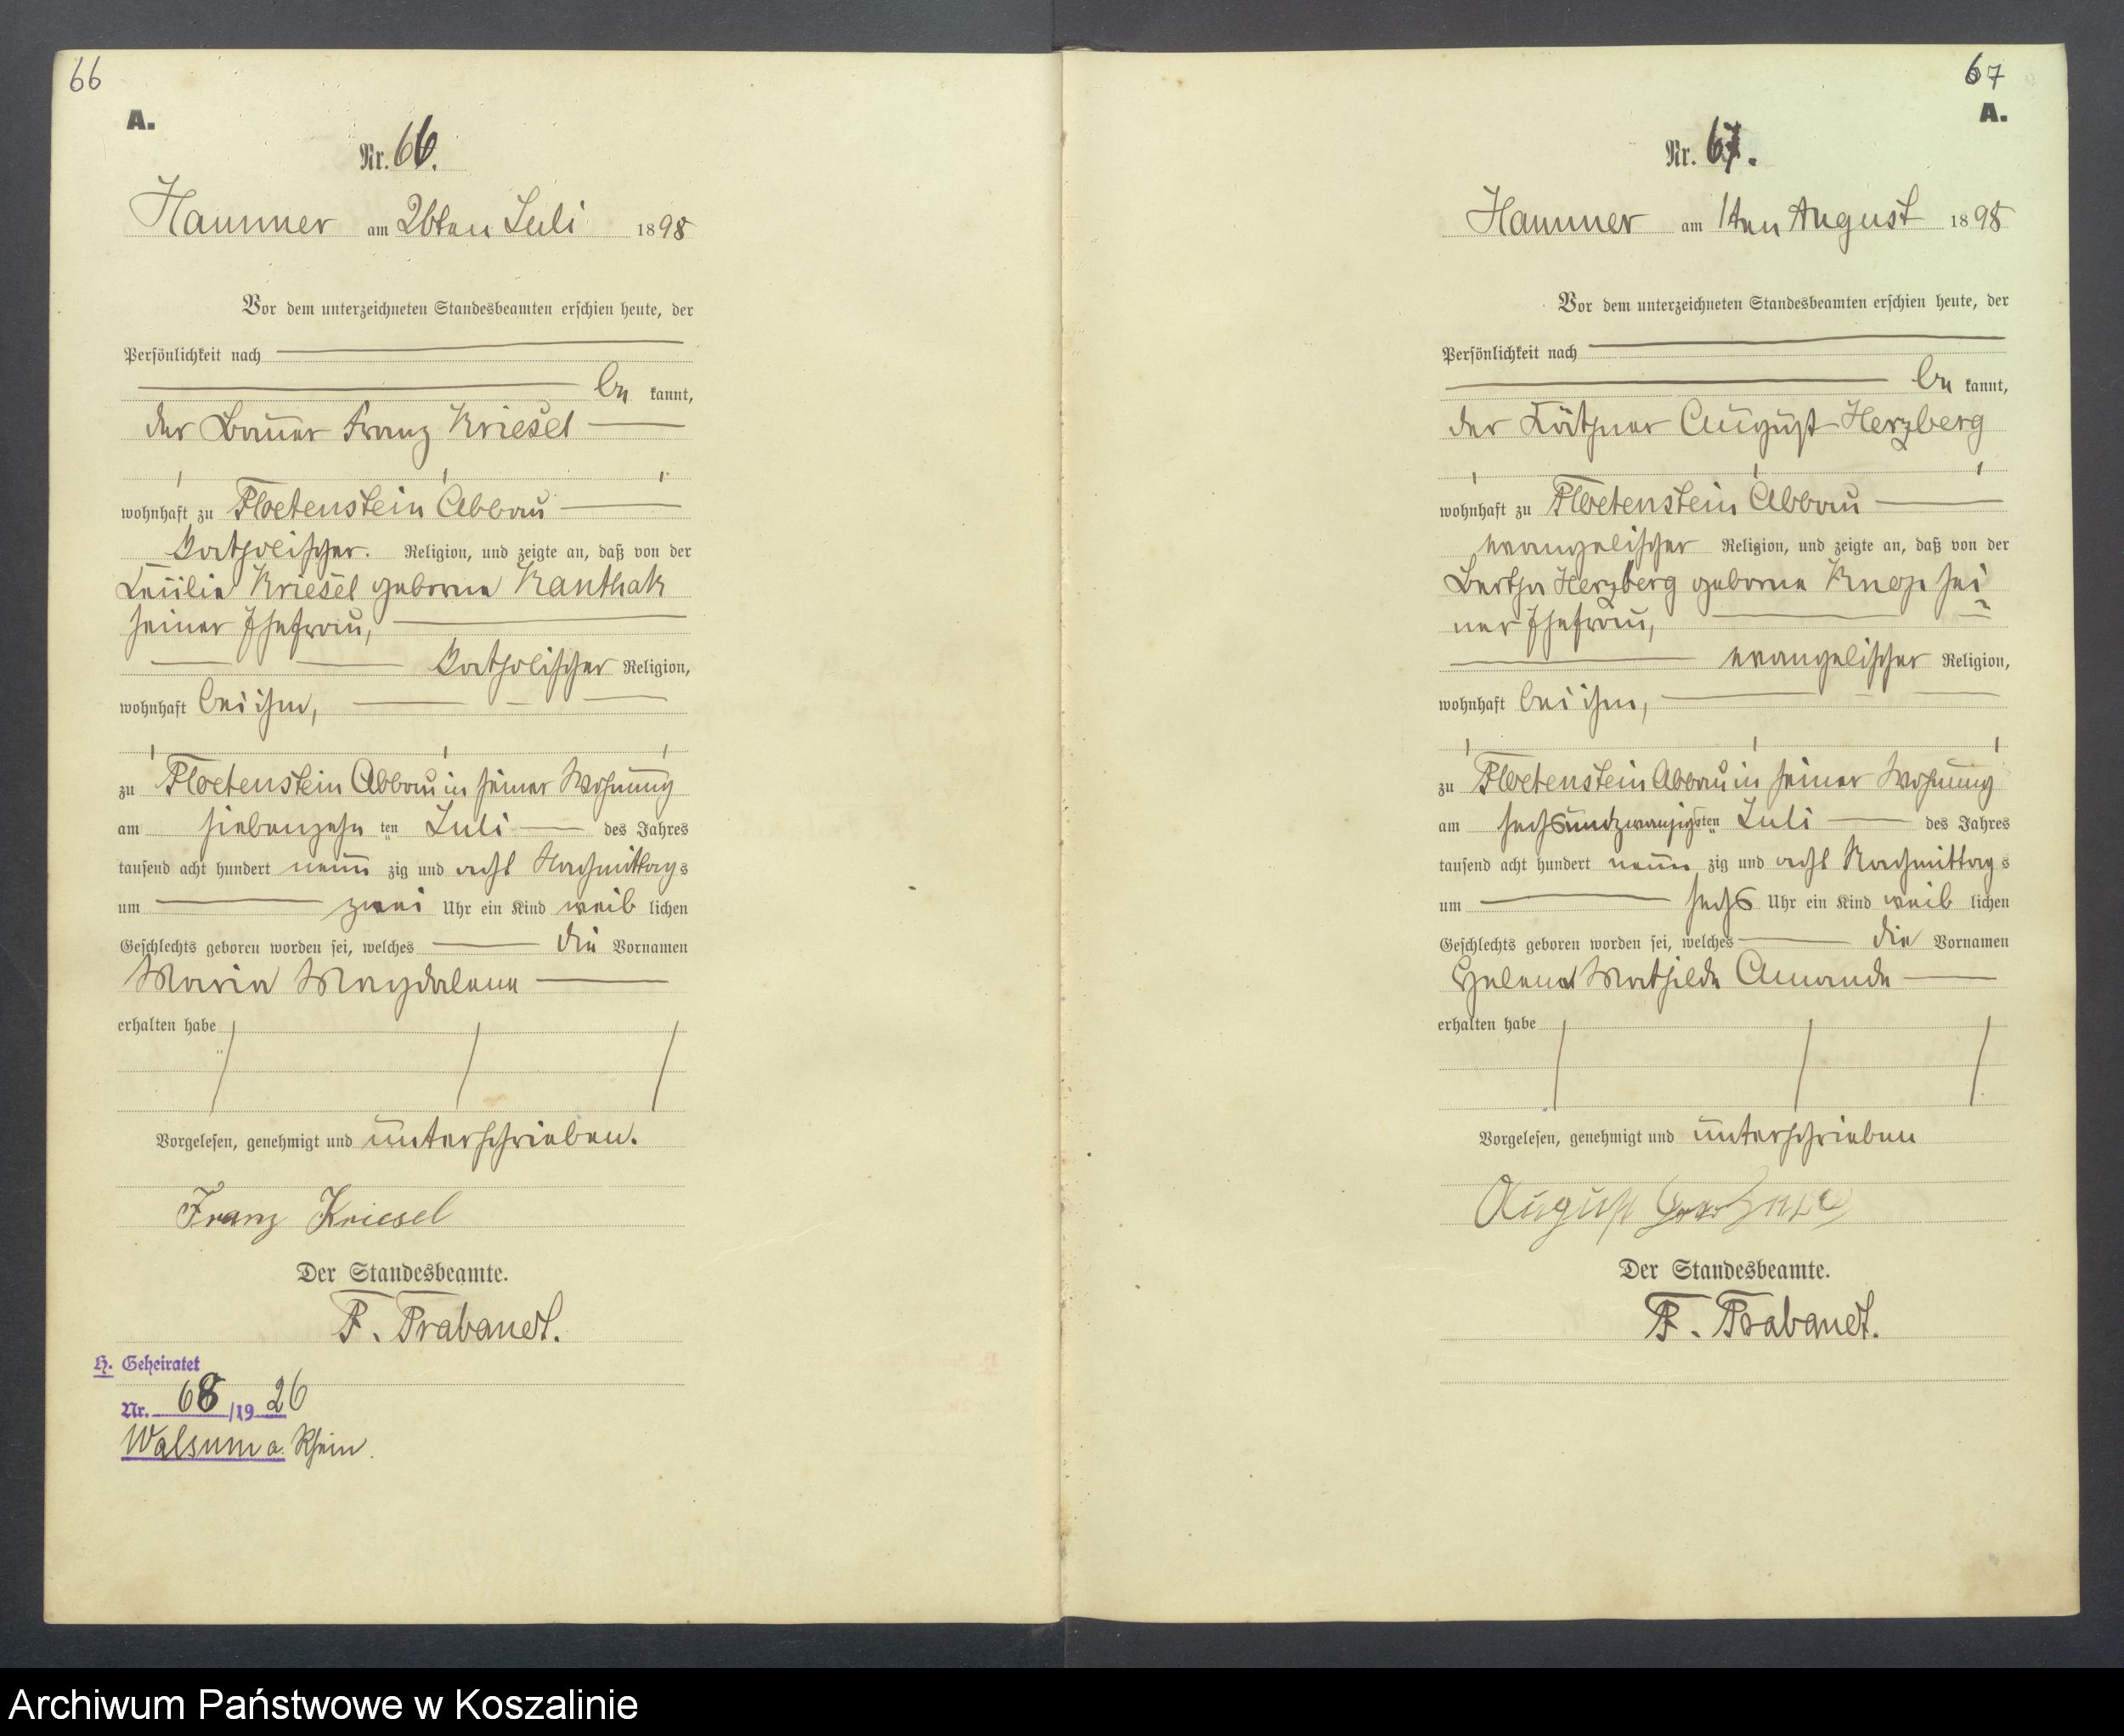 66
A.
Nr. 66.
Hammer am 26ten Juli 1898
Vor dem unterzeichneten Standesbeamten erschien heute, der
Persönlichkeit nach
be kannt,
der Bauer Franz Kriesel
wohnhaft zu Floetenstein Abbau
katholischer. Religion, und zeigte an, daß von der
Kriesel geborne Kanthak
seiner Ehefrau,
katholischer Religion,
wohnhaft bei ihm,
zu Floetenstein Abbau in seiner Wohnung
am siebenzehn ten Juli des Jahres
tausend acht hundert neun zig und acht Nachmittags
um zwei Uhr ein Kind weib lichen
Geschlechts geboren worden sei, welches die Vornamen
Maria Magdalena
erhalten habe
Vorgelesen, genehmigt und unterschrieben.
Franz Kriesel
Der Standesbeamte.
F. Trabandt.
H. Geheiratet
Nr. 68/1926
Walsum a. Rhein.
67
A.
Nr. 67.
Hammer am 1ten August 1898
Vor dem unterzeichneten Standesbeamten erschien heute, der
Persönlichkeit nach
be kannt,
der Käthner August Herzberg
wohnhaft zu Floetenstein Abbau
evangelischer Religion, und zeigte an, daß von der
Bertha Herzberg geborne sei
ner Ehefrau,
evangelischer Religion,
wohnhaft bei ihm,
zu Floetenstein Abbau in seiner Wohnung
am sechsundzwanzigsten Juli des Jahres
tausend acht hundert neun zig und acht Nachmittags
um sechs Uhr ein Kind weib lichen
Geschlechts geboren worden sei, welches die Vornamen
Helena Mathilde Amanda
erhalten habe
Vorgelesen, genehmigt und unterschrieben
August Herzberg
Der Standesbeamte.
F. Trabandt.
Archiwum Państwowe w Koszalinie